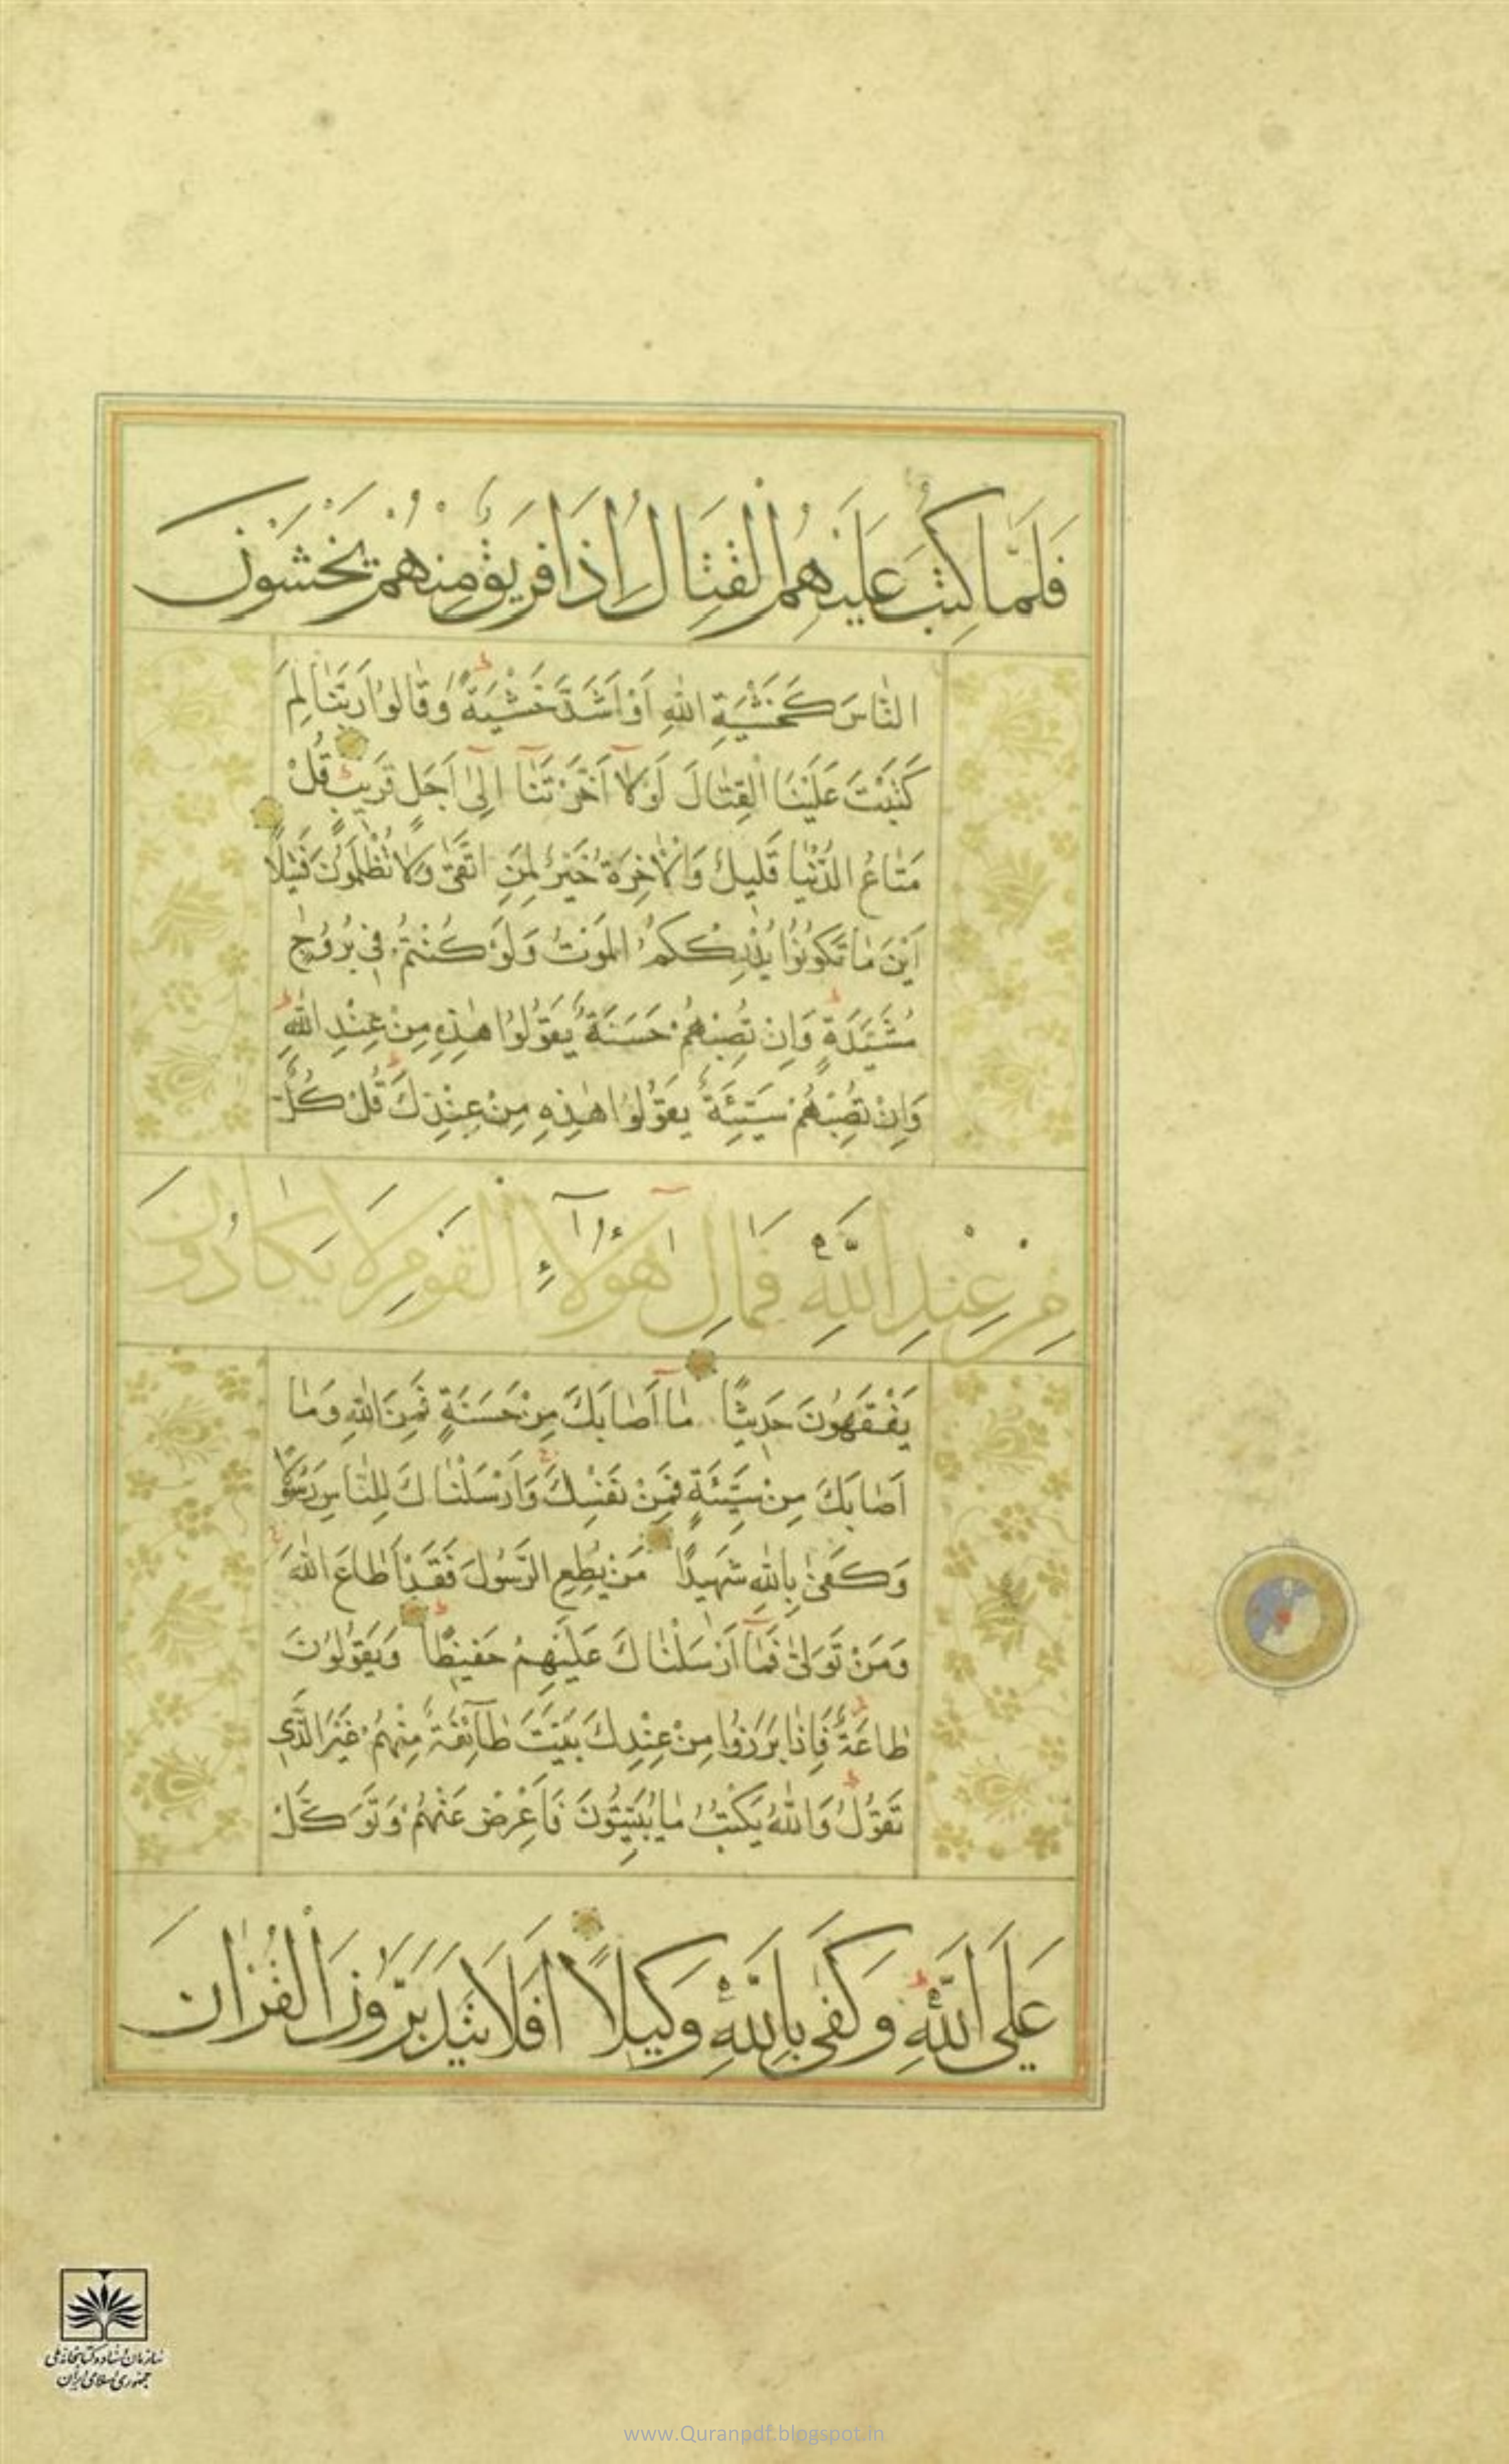 فَلَمَّا كُتِبَ عَلَيْهِمُ الْقِتَالُ إِذَا فَرِيقٌ مِنْهُمْ يَخْشَوْنَ
النَّاسَ كَخَشْيَةِ اللّٰهِ اَوْ اَشَدَّ خَشْيَةً وَقَالُوا رَبَّنَا لِمَ
كَتَبْتَ عَلَيْنَا الْقِتَالَ لَوْلَا اَخَّرْتَنَا اِلٰى اَجَلٍ قَرِيبٍ قُلْ
مَتَاعُ الدُّنْيَا قَلِيلٌ وَالْاٰخِرَةُ خَيْرٌ لِمَنِ اتَّقٰى وَلَا تُظْلَمُونَ فَتِيلًا
اَيْنَ مَا تَكُونُوا يُدْرِكْكُمُ الْمَوْتُ وَلَوْ كُنْتُمْ فِي بُرُوجٍ
مُشَيَّدَةٍ وَاِنْ تُصِبْهُمْ حَسَنَةٌ يَقُولُوا هٰذِهِ مِنْ عِنْدِ اللّٰهِ
وَاِنْ تُصِبْهُمْ سَيِّئَةٌ يَقُولُوا هٰذِهِ مِنْ عِنْدِكَ قُلْ كُلٌّ
مِنْ عِنْدِ اللّٰهِ فَمَالِ هٰؤُلَآءِ الْقَوْمِ لَا يَكَادُونَ
يَفْقَهُونَ حَدِيثًا مَا اَصَابَكَ مِنْ حَسَنَةٍ فَمِنَ اللّٰهِ وَمَا
اَصَابَكَ مِنْ سَيِّئَةٍ فَمِنْ نَفْسِكَ وَاَرْسَلْنَاكَ لِلنَّاسِ رَسُولًا
وَكَفٰى بِاللّٰهِ شَهِيدًا مَنْ يُطِعِ الرَّسُولَ فَقَدْ اَطَاعَ اللّٰهَ
وَمَنْ تَوَلّٰى فَمَا اَرْسَلْنَاكَ عَلَيْهِمْ حَفِيظًا وَيَقُولُونَ
طَاعَةٌ فَاِذَا بَرَزُوا مِنْ عِنْدِكَ بَيَّتَ طَآئِفَةٌ مِنْهُمْ غَيْرَ الَّذِي
تَقُولُ وَاللّٰهُ يَكْتُبُ مَا يُبَيِّتُونَ فَاَعْرِضْ عَنْهُمْ وَتَوَكَّلْ
عَلَى اللّٰهِ وَكَفٰى بِاللّٰهِ وَكِيلًا اَفَلَا يَتَدَبَّرُونَ الْقُرْاٰنَ
سازمان اسناد و کتابخانه ملی
جمهوری اسلامی ایران
www.Quranpdf.blogspot.in